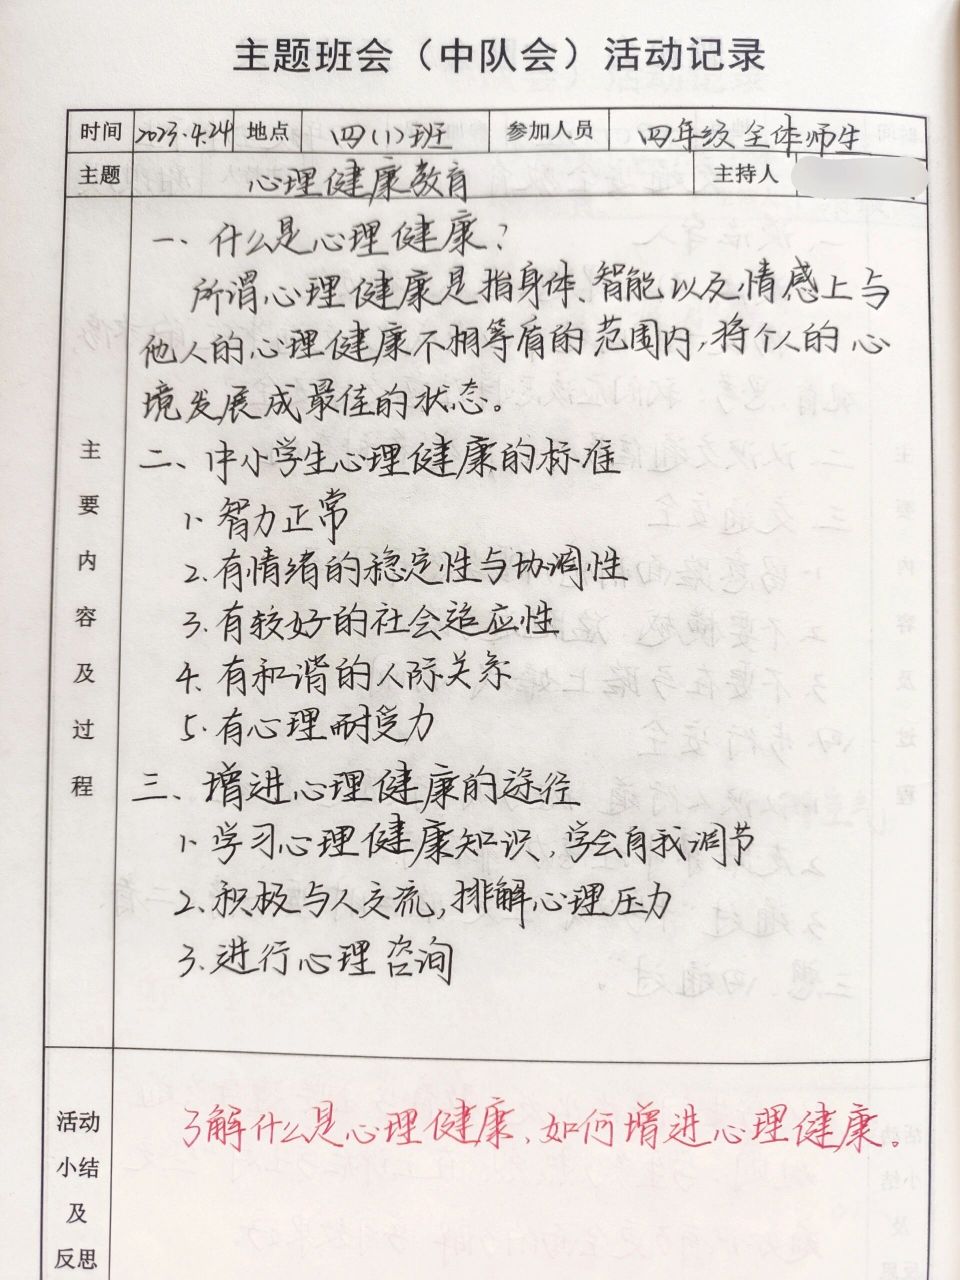 主题班会（中队会）活动记录
时间 2023.4.24 地点 四(1)班 参加人员 四年级全体师生
主题 心理健康教育 主持人
主要内容及过程
一、什么是心理健康？
所谓心理健康是指身体、智能以及情感上与
他人的心理健康不相等盾的范围内,将个人的心
境发展成最佳的状态。
二、中小学生心理健康的标准
1、智力正常
2.有情绪的稳定性与协调性
3.有较好的社会适应性
4.有和谐的人际关系
5.有心理耐受力
三、增进心理健康的途径
1、学习心理健康知识,学会自我调节
2.积极与人交流,排解心理压力
3.进行心理咨询
活动
小结
及
反思
了解什么是心理健康、如何增进心理健康。